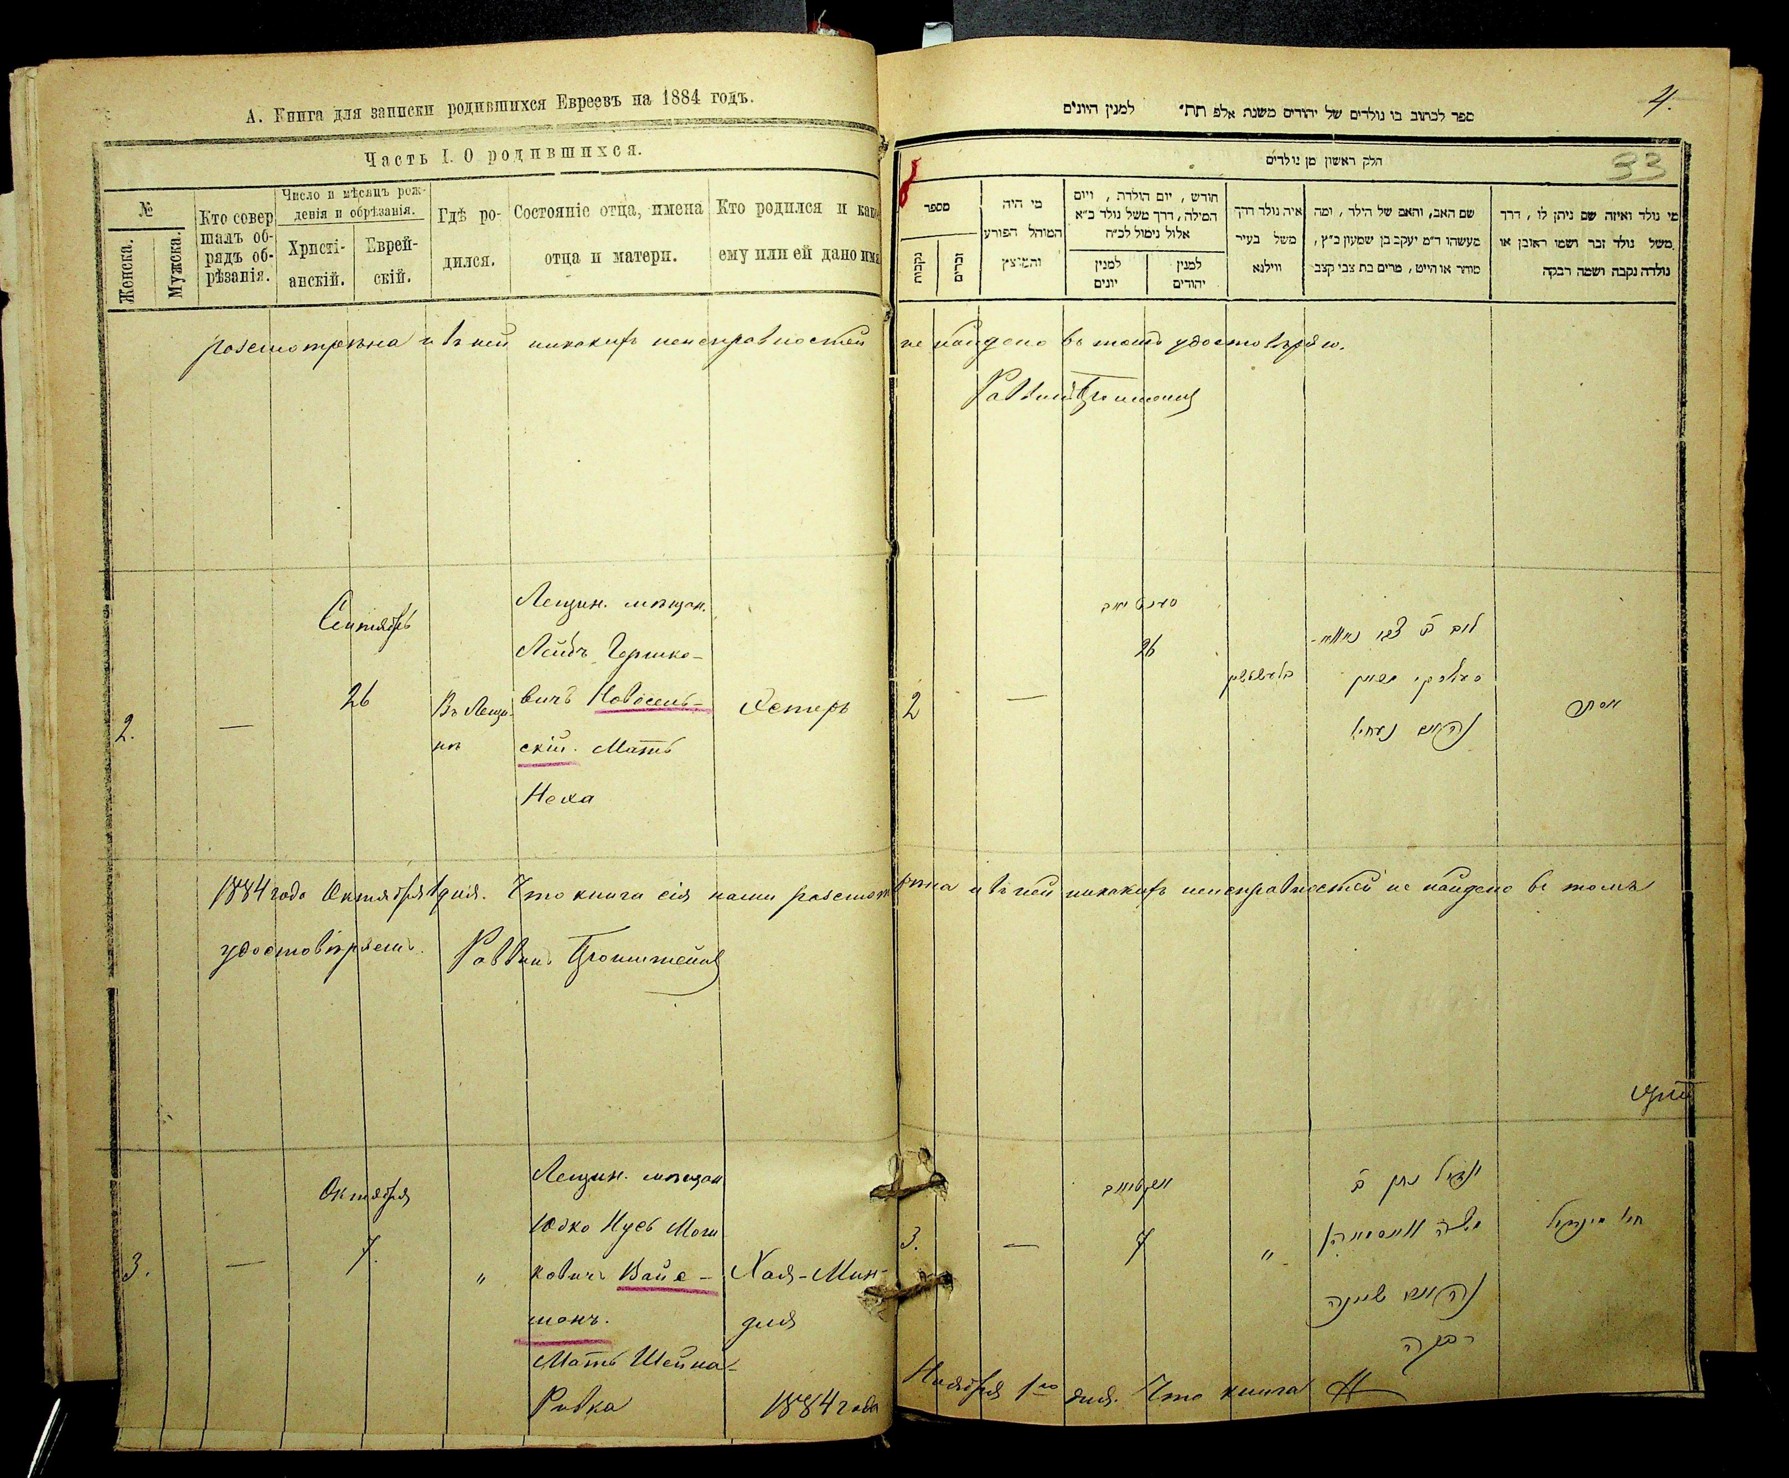 А. Книга для записки родившихся Евреевъ на 1884 годъ.
Часть I. О родившихся.
№
Женска.
Мужска.
Кто совер
шалъ об-
рядъ об-
рѣзанія.
Число и мѣсяцъ рож-
денія и обрѣзанія.
Христі-
анскій.
Еврей-
скій.
Гдѣ ро-
дился.
Состояніе отца, имена
отца и матери.
Кто родился и како
ему или ей дано имя
разсмотрѣна и въ ней никакихъ неисправностей
Сентябрь
26
2.
—
Лещин. мѣщан.
Лейбъ Гершко-
вичъ Новосель-
скій. Мать
Неха
Эстеръ
1884 года Октября 1 дня. Что книга сія нами разсмот
удостовѣряемъ. Раввинъ
Октября
7.
3.
—
"
Лещин. мѣщан
Юдко Нусъ Мош
ковичъ Вайс-
манъ.
Мать Шейна-
Ривка
Хая-Мин-
для
1884 года
4.
33
ספר לכתוב בו נולדים של יהודים משנת אלפ תת״ למנין היונים
חלק ראשון מן נולדים
מספר
נקבות
זכרים
מי היה
המוהל הפורע
והמוצץ
חודש , יום הולדת , ויום
המילה , דרך משל נולד כ״א
אלול נימול לכ״ח
למנין
יונים
למנין
יהודים
איה נולד דרך
משל בעיר
ווילנא
שם האב, והאם של הילד , ומה
מעשהו ד״מ יעקב בן שמעון כ״ץ ,
סוחר או חייט , מרים בת צבי קצב
מי נולד ואיזה שם ניתן לו , דרך
משל נולד זכר ושמו ראובן או
נולדה נקבה ושמה רבקה
не найдено въ томъ удостовѣряю.
Раввинъ
26
2
—
אסתר
рѣна и въ ней никакихъ неисправностей не найдено въ томъ
3.
—
7
"
שיינה
רבקה
Ноября 1го дня. Что книга